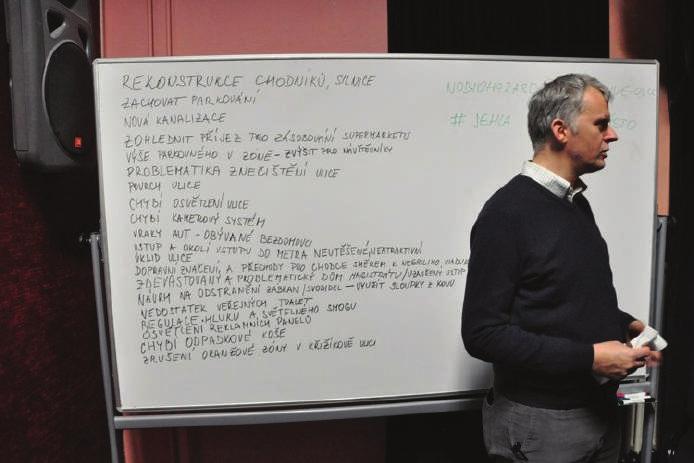 REKONSTRUKCE CHODNÍKŮ, SILNICE
ZACHOVAT PARKOVÁNÍ
NOVÁ KANALIZACE
ZOHLEDNIT PŘÍJEZ PRO ZÁSOBOVÁNÍ SUPERMARKETU
VÝŠE PARKOVNÉHO V ZÓNĚ – ZVÝŠIT PRO NÁVŠTĚVNÍKY
PROBLEMATIKA ZNEČIŠTĚNÍ ULICE
POVRCH ULICE
CHYBÍ OSVĚTLENÍ ULICE
CHYBÍ KAMEROVÝ SYSTÉM
VRAKY AUT - OBÝVANÉ BEZDOMOVCI
VSTUP A OKOLÍ VSTUPU DO METRA NEUTĚŠENÉ, NEATRAKTIVNÍ
ÚKLID ULICE
DOPRAVNÍ ZNAČENÍ, A PŘECHODY PRO CHODCE SMĚREM K NEGRELIHO
ZDEVASTOVANÝ A PROBLEMATICKÝ DŮM MAGISTRÁTU/UZAVŘENÝ VSTUP
NÁVRH NA ODSTRANĚNÍ ZÁBRAN/SVODIDEL – VYUŽÍT SLOUPKY Z KOVU
NEDOSTATEK VEŘEJNÝCH TOALET
REGULACE HLUKU A SVĚTELNÉHO SMOGU
OSVĚTLENÍ REKLAMNÍCH PANELŮ
CHYBÍ ODPADKOVÉ KOŠE
ZRUŠENÍ ORANŽOVÉ ZÓNY V KŘIŽÍKOVĚ ULICI
# JEHLA